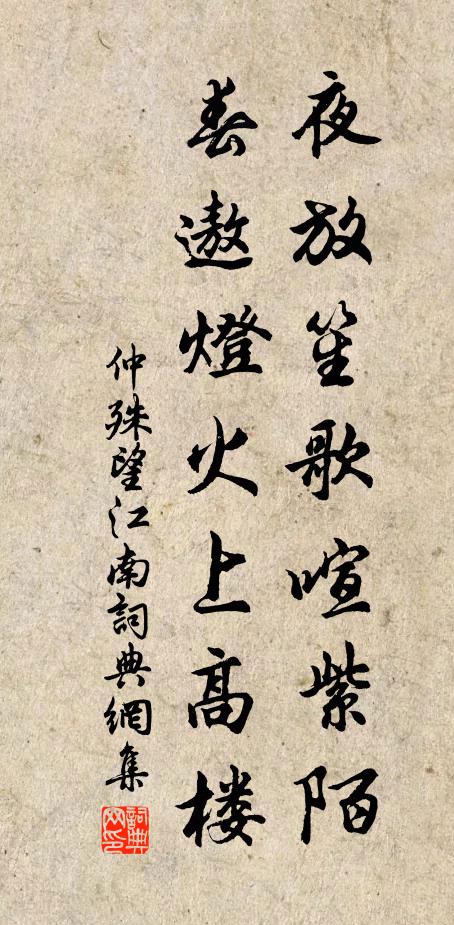 夜放笙歌喧紫陌
春遨燈火上高楼
仲殊望江南詞典網集
詞典网印